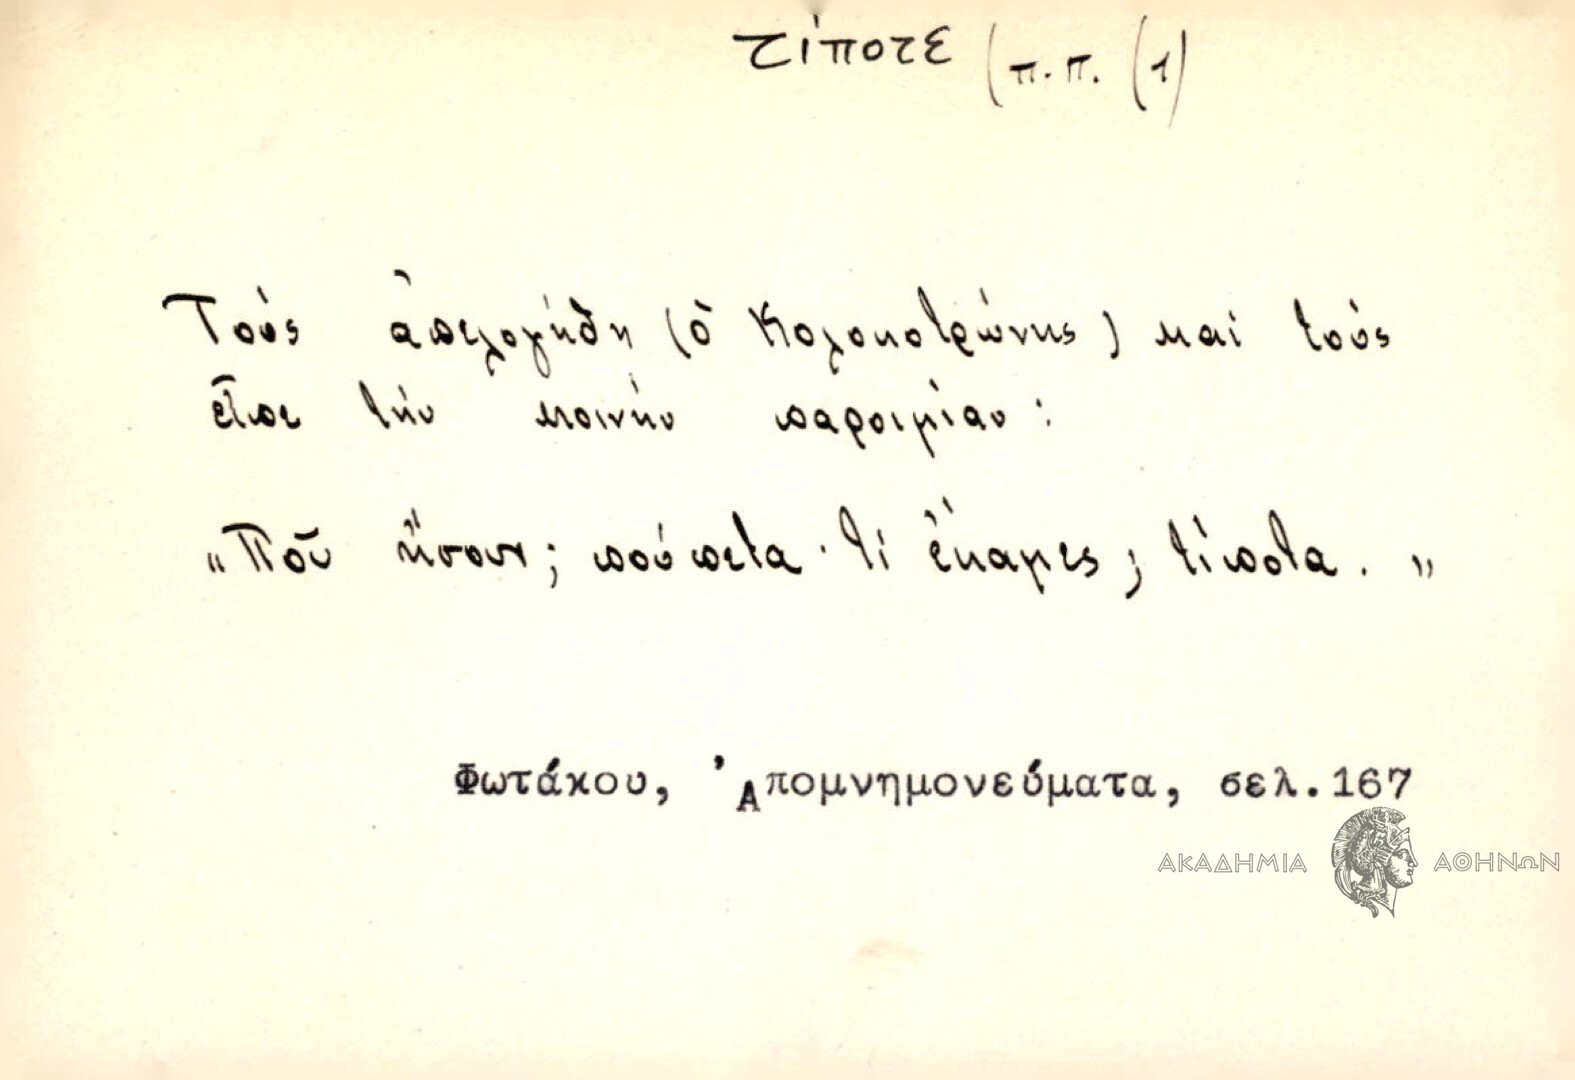 τίποτε (π.π. (1)
Τοὺς ἀπελογήθη (ὁ Κολοκοτρώνης) καὶ τοὺς
εἶπε τὴν κοινὴν παροιμίαν:
„Ποῦ ἤσουν; πούπετα· τί ἔκαμες; τίποτα.”
Φωτάκου, Ἀπομνημονεύματα, σελ.167
ΑΚΑΔΗΜΙΑ ΑΘΗΝΩΝ